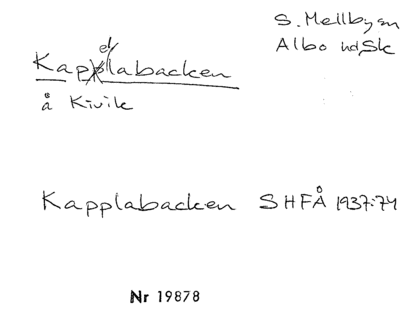 S. Mellby sn
Albo hd, Sk
Kappelabacken
å Kivik
Kapplabacken SHFÅ 1937:74
Nr 19878